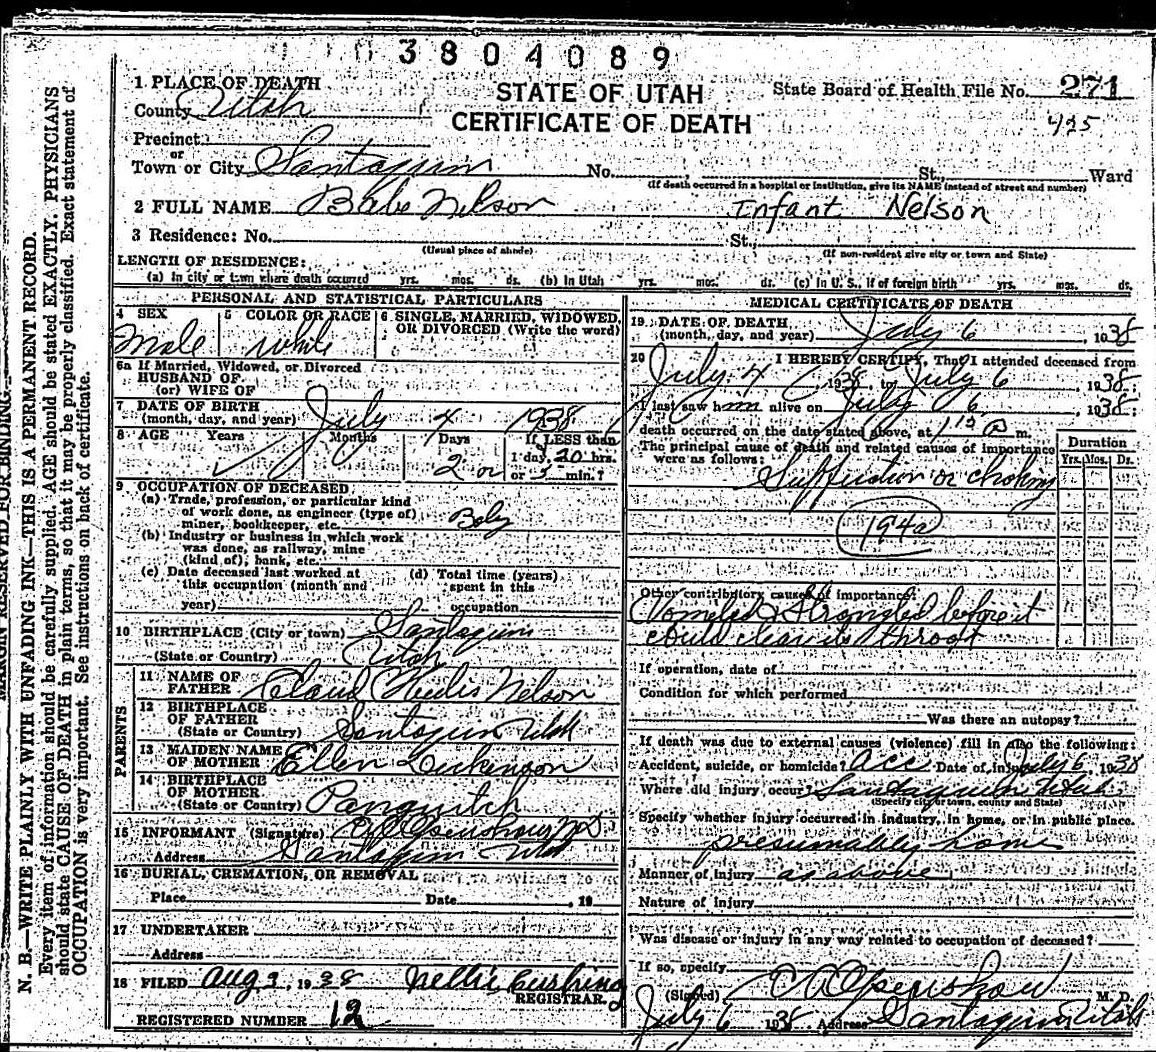 3804089
1 PLACE OF DEATH
STATE OF UTAH
State Board of Health File No. 271
County Utah
CERTIFICATE OF DEATH
495
Precinct
or
Town or City Santaquin No. St., Ward
(If death occurred in a hospital or institution, give its NAME instead of street and number)
2 FULL NAME Babe Nelson Infant Nelson
3 Residence: No. St.,
(Usual place of abode) (If non-resident give city or town and State)
LENGTH OF RESIDENCE:
(a) In city or town where death occurred yrs. mos. ds. (b) In Utah yrs. mos. ds. (c) In U. S., if of foreign birth yrs. mos. ds.
PERSONAL AND STATISTICAL PARTICULARS
4 SEX 5 COLOR OR RACE 6 SINGLE, MARRIED, WIDOWED,
OR DIVORCED (Write the word)
Male White
6a If Married, Widowed, or Divorced
HUSBAND OF
(or) WIFE OF
7 DATE OF BIRTH
(month, day, and year) July 4 1938
8 AGE Years Months Days If LESS than
1 day, 20 hrs.
2 or or 5 min.?
9 OCCUPATION OF DECEASED
(a) Trade, profession, or particular kind
of work done, as engineer (type of)
miner, bookkeeper, etc. Baby
(b) Industry or business in which work
was done, as railway, mine
(kind of), bank, etc.
(c) Date deceased last worked at (d) Total time (years)
this occupation (month and spent in this
year) occupation
10 BIRTHPLACE (City or town) Santaquin
(State or Country) Utah
PARENTS
11 NAME OF
FATHER Claud Nelson
12 BIRTHPLACE
OF FATHER
(State or Country) Santaquin Utah
13 MAIDEN NAME
OF MOTHER Ellen Dickenson
14 BIRTHPLACE
OF MOTHER
(State or Country) Panguitch
15 INFORMANT (Signature) C. A. Openshaw MD
Address Santaquin Utah
16 BURIAL, CREMATION, OR REMOVAL
Place Date , 19
17 UNDERTAKER
Address
18 FILED Aug 3, 1938 Nellie Cushing
REGISTRAR.
REGISTERED NUMBER 12
MEDICAL CERTIFICATE OF DEATH
19 DATE OF DEATH
(month, day, and year) July 6, 1938
20 I HEREBY CERTIFY, That I attended deceased from
July 4, 1938, to July 6, 1938;
I last saw him alive on July 6, 1938;
death occurred on the date stated above, at 1 15 a m.
The principal cause of death and related causes of importance
were as follows:
Duration
Yrs. Mos. Ds.
or choking
194a
Other contributory causes of importance:
Vomited & strangled before it
could clear its throat
If operation, date of
Condition for which performed
Was there an autopsy?
If death was due to external causes (violence) fill in also the following:
Accident, suicide, or homicide? Acc Date of injury July 6, 1938
Where did injury occur? Santaquin Utah
(Specify city or town, county and State)
Specify whether injury occurred in industry, in home, or in public place.
presumably home
Manner of injury as above
Nature of injury
Was disease or injury in any way related to occupation of deceased?
If so, specify
(Signed) C. A. Openshaw M. D.
July 6 1938 Address Santaquin Utah
MARGIN RESERVED FOR BINDING
N. B.—WRITE PLAINLY WITH UNFADING INK—THIS IS A PERMANENT RECORD.
Every item of information should be carefully supplied. AGE should be stated EXACTLY. PHYSICIANS
should state CAUSE OF DEATH in plain terms, so that it may be properly classified. Exact statement of
OCCUPATION is very important. See instructions on back of certificate.